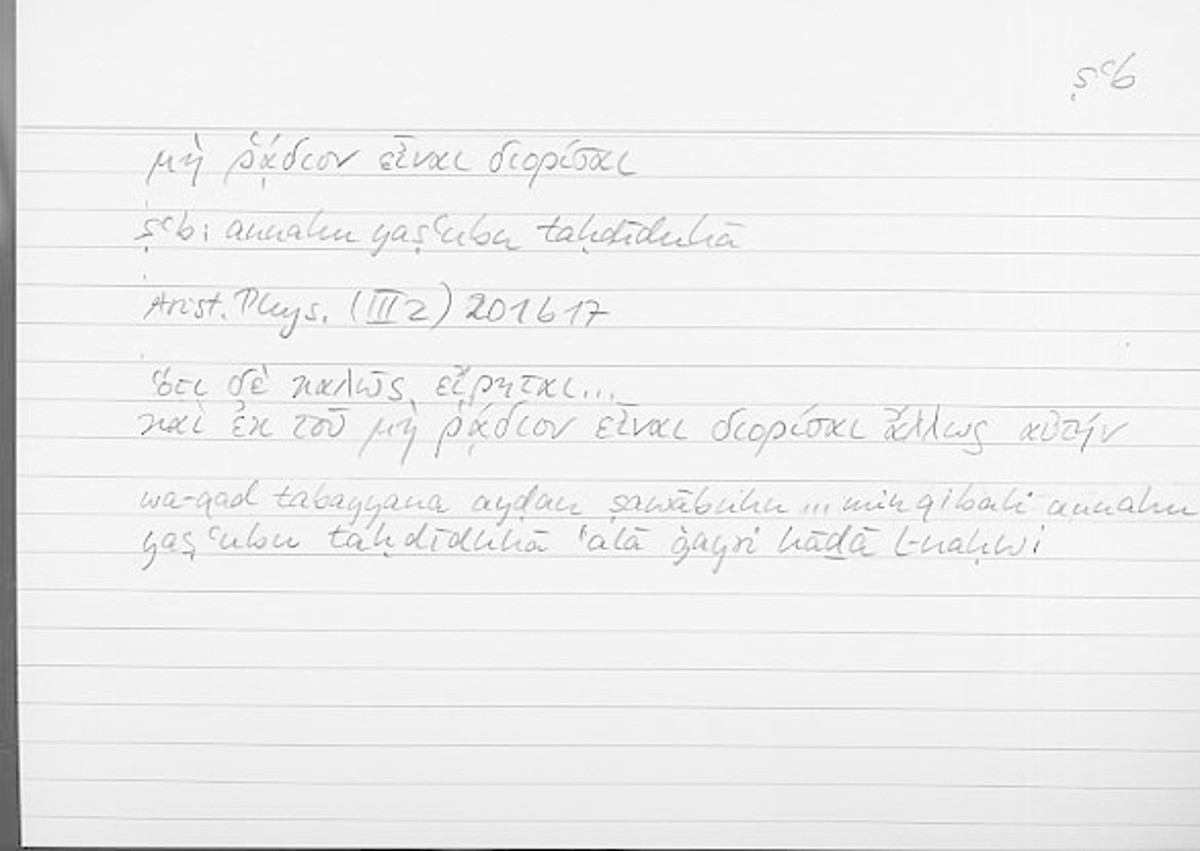 ṣʿb
μὴ ῥᾴδιον εἶναι διορίσαι
ṣʿb: annahu yaṣʿubu taḥdīduhā
Arist. Phys. (III 2) 201b17
ὅτι δὲ καλῶς εἴρηται...
καὶ ἐκ τοῦ μὴ ῥᾴδιον εἶναι διορίσαι ἄλλως αὐτήν
wa-qad tabayyana ayḍan ṣawābuhu ... min qibali annahu
yaṣʿubu taḥdīduhā ʿalā ġayri hāḏā l-naḥwi